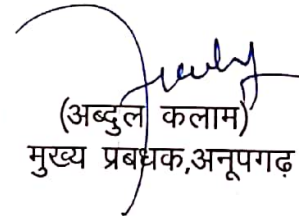 (अब्दुल कलाम)
मुख्य प्रबंधक,अनूपगढ़